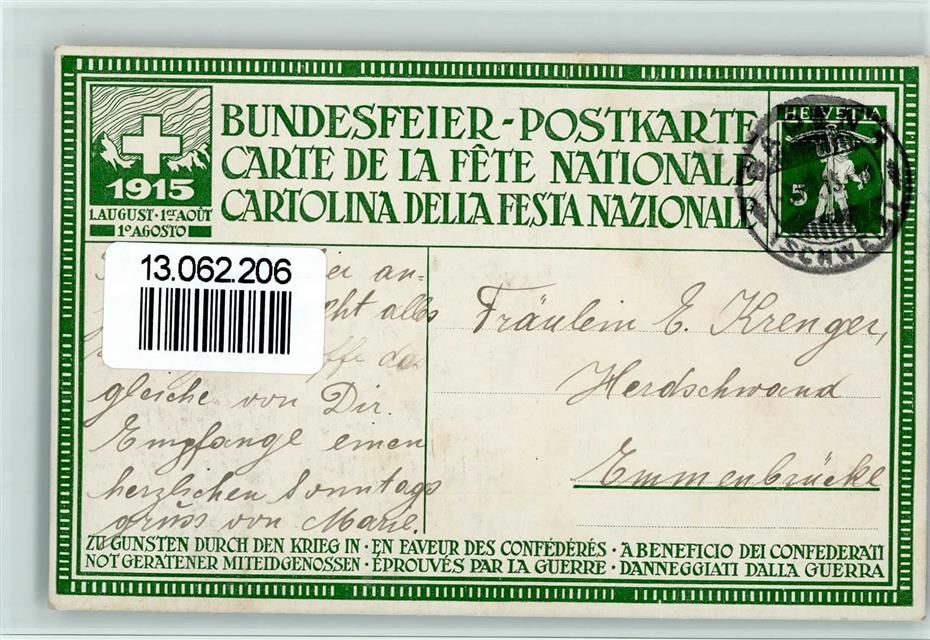 BUNDESFEIER-POSTKARTE
CARTE DE LA FÊTE NATIONALE
CARTOLINA DELLA FESTA NAZIONALE
1915
1.AUGUST·1ER AOÛT
1º AGOSTO
HELVETIA
5
(SCHWEIZ)
13.062.206
an=
alles
gleiche von Dir.
Empfange einen
herzlichen Sonntags
gruss von Marie.
Fräulein E. Krenger,
Herdschwand
Emmenbrücke
ZU GUNSTEN DURCH DEN KRIEG IN · EN FAVEUR DES CONFÉDÉRÉS · A BENEFICIO DEI CONFEDERATI
NOT GERATENER MITEIDGENOSSEN · ÉPROUVÉS PAR LA GUERRE · DANNEGGIATI DALLA GUERRA